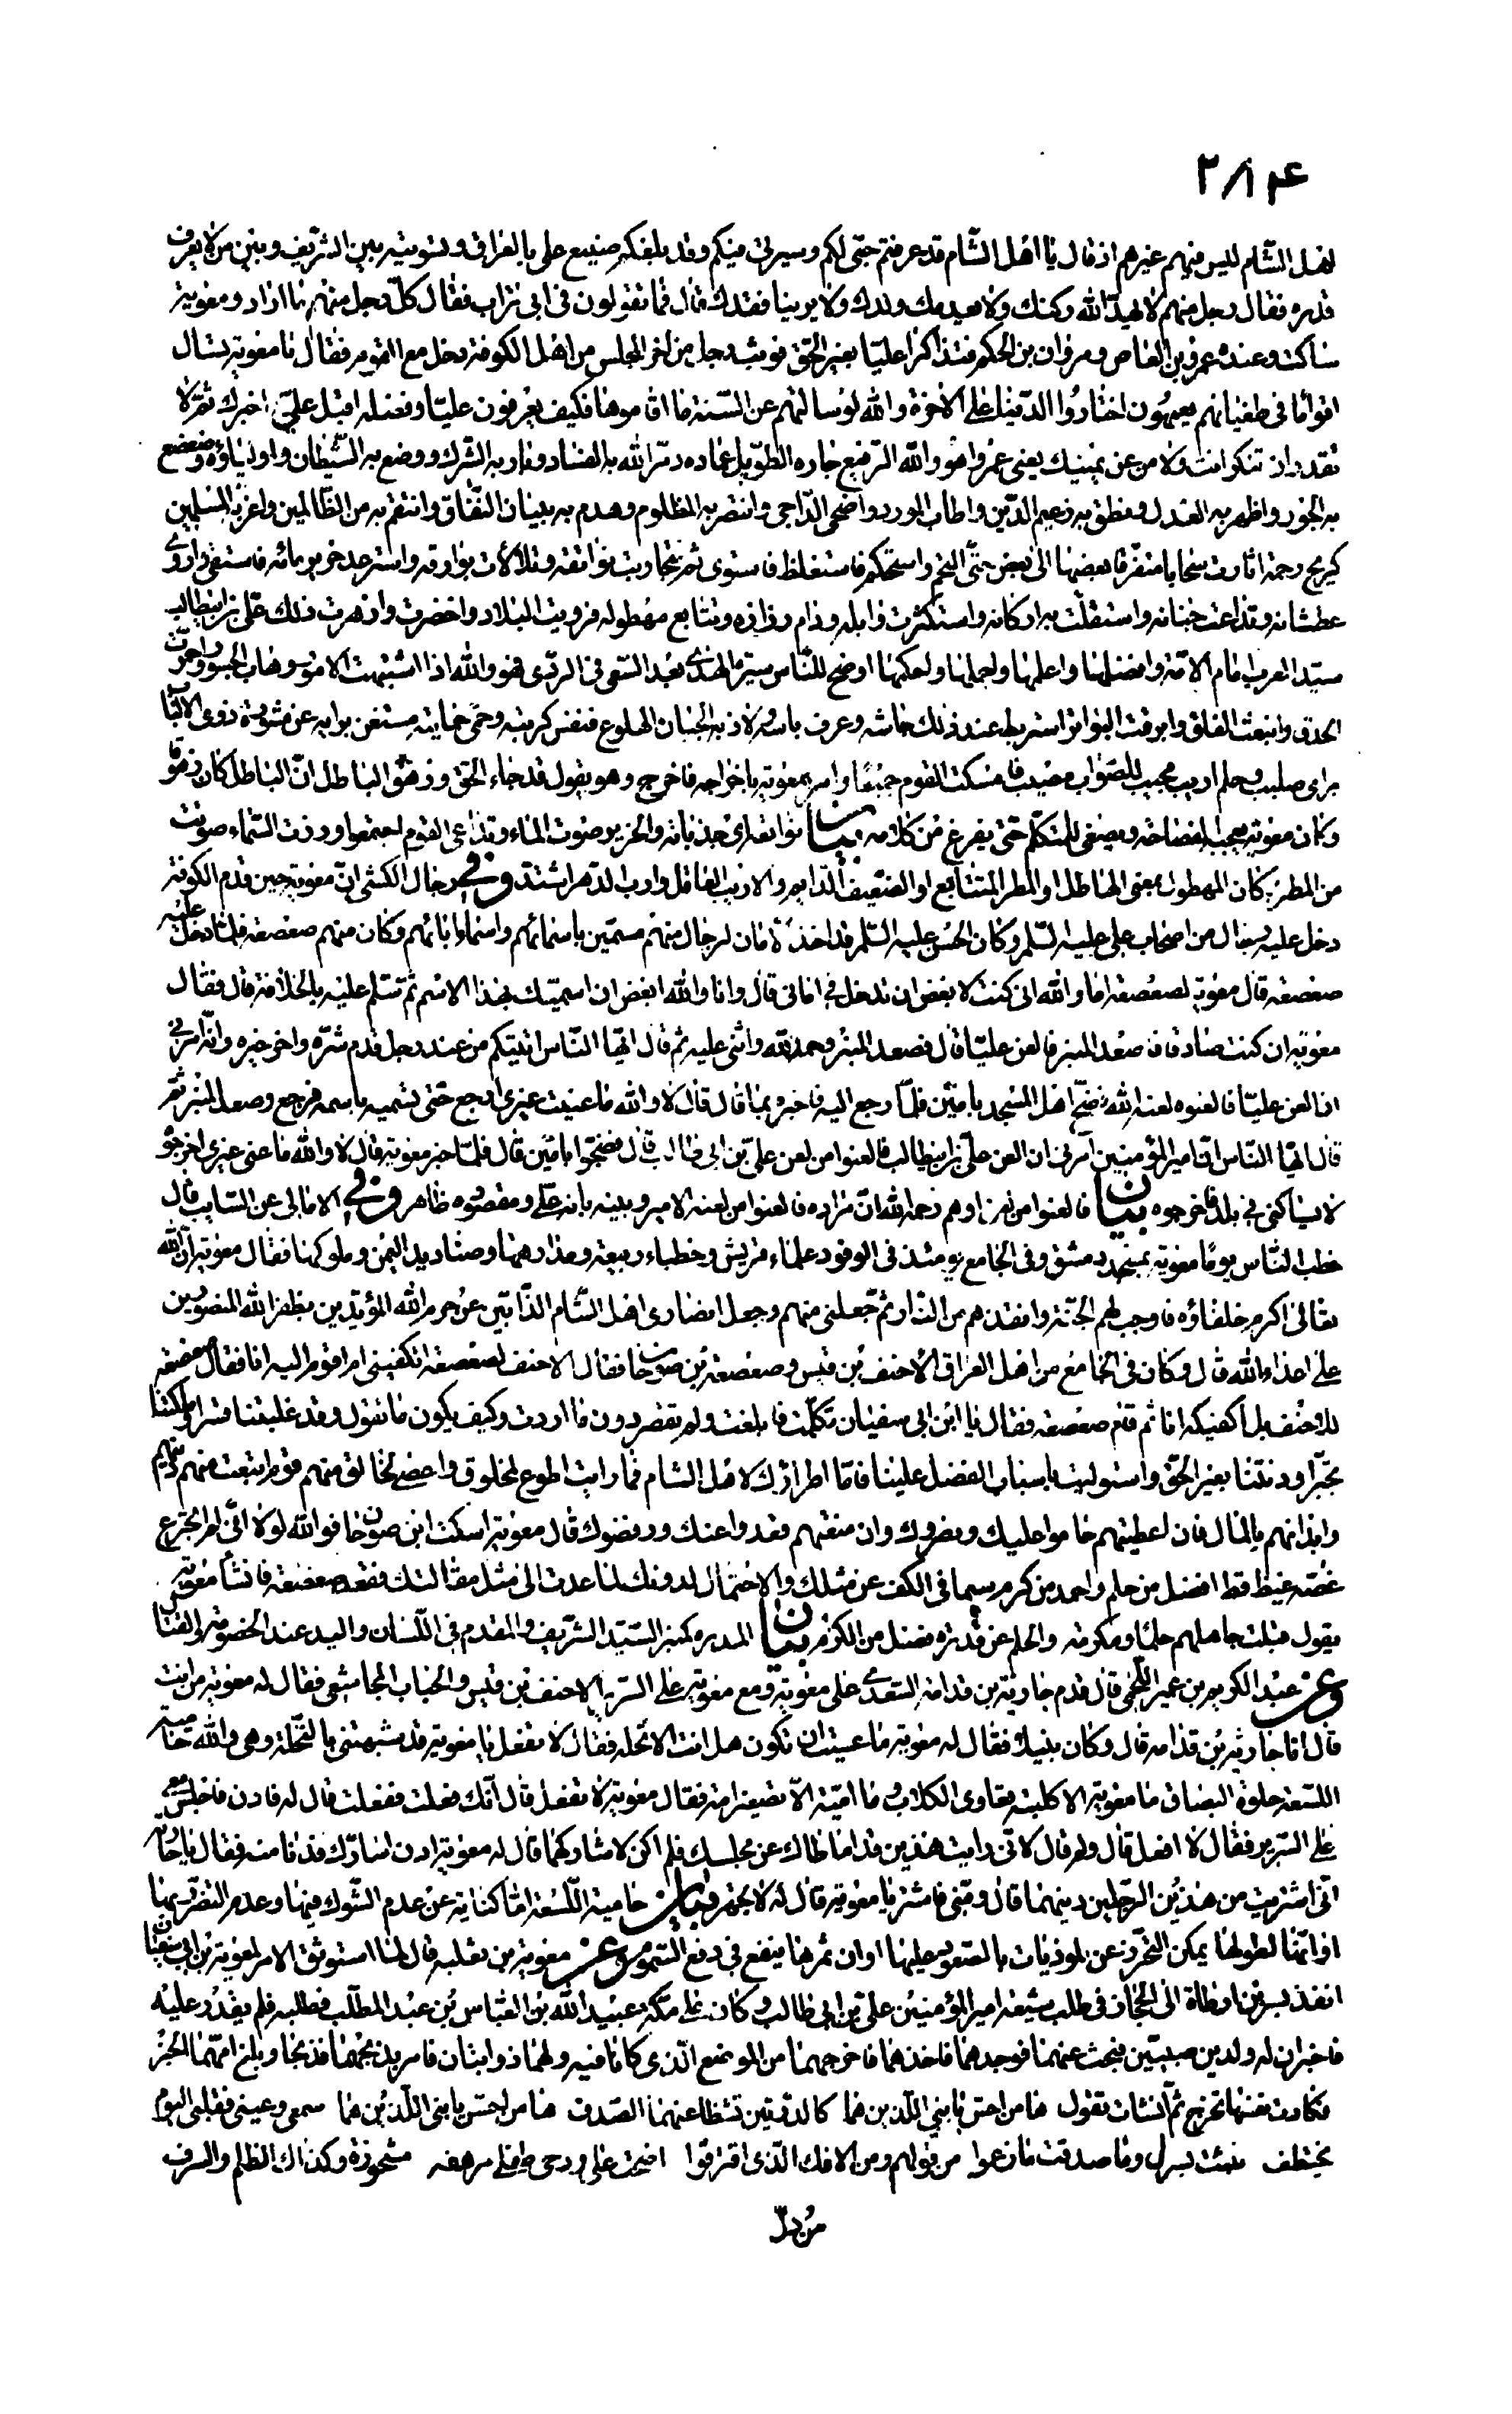 ٣٨۴
اهل الشام ليس فيهم غيرهم اذ قال يا اهل الشام قد عرفتم حبى لكم وسيرتى فيكم وقد بلغكم صنيع على بالعراق وتسويته بين الشريف وبين من لا يعرف
قدره فقال رجل منهم لا يهد الله ركنك ولا يعدمك ولدك ولا يرينا فقدك قال فما تقولون فى ابى تراب فقال كل رجل منهم ما اراد ومعوية
ساكت وعنده عمرو بن العاص ومروان بن الحكم فتذاكرا عليا بغير الحق فوثب رجل من اخر المجلس من اهل الكوفة دخل مع القوم فقال يا معوية تسال
اقواما فى طغيانهم يعمهون اختاروا الدنيا على الاخرة والله لو سالتهم عن السنة ما اقاموها فكيف يعرفون عليا وفضله اقبل على اخبرك ثم لا
تقدر ان تنكر انت ولا من عن يمينك يعنى عمروا هو والله الرفيع جاره الطويل عماده دمر الله به الفساد وبار به الشرك ووضع به الشيطان واولياؤه وضعضع
به الجور واظهر به العدل ونطق به زعيم الدين واطاب المورد واضحى الداجى وانتصر به المظلوم وهدم به بنيان النفاق وانتقم به من الظالمين واعز به المسلمين
كريح رحمة اثارت سحابا متفرقا بعضها الى بعض حتى التحم واستحكم فاستغلظ فاستوى ثم تجاوبت نواتقه وتلالات بوارقه واسترعد خرير مائه فاسقى واروى
عطشانه وتداعت جنانه واستقلت به اركانه واستكثرت وابله ودام رذاذه وتتابع مهطوله فرويت البلاد واخضرت وازهرت ذلك على بن ابيطالب
سيد العرب امام الامة وافضلها واعلمها واجملها واحكمها اوضح للناس سيرة الهدى بعد السعى فى الردى فهو والله اذا اشتبهت الامور وهاب الجسور واحمرت
الحدق وانبعث القلق وابرقت البواتر استربط عند ذلك جاشه وعرف باسه ولاذ به الجبان الهلوع فنفس كربته وحمى حمايته مستغن برايه عن مشورة ذوى الالباب
براى صليب وحلم اريب مجيب للصواب مصيب فامسكت القوم جميعا وامر معوية باخراجه فاخرج وهو يقول قد جاء الحق وزهق الباطل ان الباطل كان زهوقا
وكان معوية يعجبه الفصاحة ويصغى للمتكلم حتى يفرغ من كلامه بيان نواتقه اى جذباته والخرير صوت الماء وتداعى القوم اجتمعوا ورذت السماء صوتت
من المطر كان المهطول بمعنى الهاطل او المطر المتتابع او الضعيف الدايم والاريب العاقل وارب الدهر اشتد وفى رجال الكشى ان معوية حين قدم الكوفة
دخل عليه رجال من اصحاب على عليه السلم وكان الحسن عليه السلم قد اخذ الامان لرجال منهم مسمين باسمائهم واسماء ابائهم وكان منهم صعصعة فلما دخل عليه
صعصعة قال معوية لصعصعة اما والله انى كنت لابغض ان تدخل فى امانى قال وانا والله ابغض ان اسميك بهذا الاسم ثم تسلم عليه بالخلافة قال فقال
معوية ان كنت صادقا فاصعد المنبر فالعن عليا قال فصعد المنبر وحمد الله واثنى عليه ثم قال ايها الناس اتيتكم من عند رجل قدم شره واخر خيره وانه امرنى
ان العن عليا فالعنوه لعنه الله فضج اهل المسجد بامين فلما رجع اليه فاخبره بما قال قال لا والله ما عنيت غيرى ارجع حتى تسميه باسمه فرجع وصعد المنبر ثم
قال ايها الناس ان امير المؤمنين امرنى ان العن على بن ابيطالب فالعنوا من لعن على بن ابى طالب قال فضجوا بامين قال فلما خبر معوية قال لا والله ما عنى غيرى اخرجوه
لا يساكنى فى بلد فاخرجوه بيان فالعنوا من لعن اوهم رحمه الله ان مراده فالعنوا من لعنه الامير وبينه بانه على ومقصوده ظاهر وفى الامالى عن السايب قال
خطب الناس يوما معوية بمسجد دمشق وفى الجامع يومئذ فى الوفود علماء قريش وخطباء ربيعة ومدارهها وصناديد اليمن وملوكها فقال معوية ان الله
تعالى اكرم خلفاؤه فاوجب لهم الجنة وانقذهم من النار ثم جعلنى منهم وجعل انصارى اهل الشام الذابين عن حرم الله المؤيدين بظفر الله المنصورين
على اعداء الله قال وكان فى الجامع من اهل العراق الاحنف بن قيس وصعصعة بن صوحان فقال الاحنف لصعصعة اتكفينى ام اقوم اليه انا فقال صعصعة
للاحنف بل اكفيكه انا ثم قام صعصعة فقال يا ابن ابى سفيان تكلمت فابلغت ولم تقصر دون ما اردت وكيف يكون ما تقول وقد غلبتنا قسرا وملكتنا
تجبرا ودنتنا بغير الحق واستوليت باسباب الفضل علينا فاما اطراؤك لاهل الشام فما رايت اطوع لمخلوق واعصى لخالق منهم قوم ابتعت منهم دينهم
وابدانهم بالمال فان اعطيتهم حاموا عليك ونصروك وان منعتهم قعدوا عنك ورفضوك قال معوية اسكت ابن صوحان فوالله لولا انى لم اتجرع
غصة غيظ قط افضل من حلم واحمد من كرم سيما فى الكف عن مثلك والاحتمال لدونك لما عدت الى مثل مقالتك فقعد صعصعة فانشا معوية
يقول قبلت جاهلهم حلما ومكرمة والحلم عن قدرة فضل من الكرم بيان المدره كمنبر السيد الشريف والمقدم فى اللسان واليد عند الخصومة والقتال
وعن عبد الكريم بن عمير اللخمى قال قدم جارية بن قدامة السعدى على معوية ومع معوية على السرير الاحنف بن قيس والحباب المجاشعى فقال له معوية من انت
قال انا جارية بن قدامه قال وكان نبيلا فقال له معوية ما عسيت ان تكون هل انت الا نحله فقال لا تفعل يا معوية قد شبهتنى بالنحلة وهى والله حامية
اللسعة حلوة البصاق ما معوية الا كلبة تعاوى الكلاب وما امية الا تصغير امة فقال معوية لا تفعل قال انك فعلت ففعلت قال له فادن فاجلس معى
على السرير فقال لا افعل قال ولم قال لانى رايت هذين قد اماطاك عن مجلسك فلم اكن لاشاركهما قال له معوية ادن اسارك فدنا منه فقال يا جارية
انى اشتريت من هذين الرجلين دينهما قال ومنى فاشتر يا معوية قال له لا تجهر بيان حامية اللسعة اما كناية عن عدم الشوك فيها وعدم التضرر بها
او انها لطولها يمكن التحرز عن الموذيات بالصعود عليها او ان ثمرها ينفع فى دفع السموم وعن معوية بن ثعلبه قال لما استوثق الامر لمعوية بن ابى سفيان
انفذ بسر بن ارطاة الى الحجاز فى طلب شيعة امير المؤمنين على بن ابى طالب وكان على مكة عبيد الله بن العباس بن عبد المطلب فطلبه فلم يقدر عليه
فاخبر ان له ولدين صبيين فبحث عنهما فوجدهما فاخذهما فاخرجهما من الموضع الذى كانا فيه ولهما ذوابتان فامر بذبحهما فذبحا وبلغ امهما الخبر
فكادت نفسها تخرج ثم انشات تقول ها من احس بابنى اللذين هما كالدرتين تشظا عنهما الصدف ها من احس بابنى اللذين هما سمعى وعينى فقلبى اليوم
يختطف نبئت بسرا وما صدقت ما زعموا من قولهم ومن الافك الذى اقترفوا اضحت على ودجى طفلى مرهفه مشحوذة وكذاك الظلم والسرف
من دل